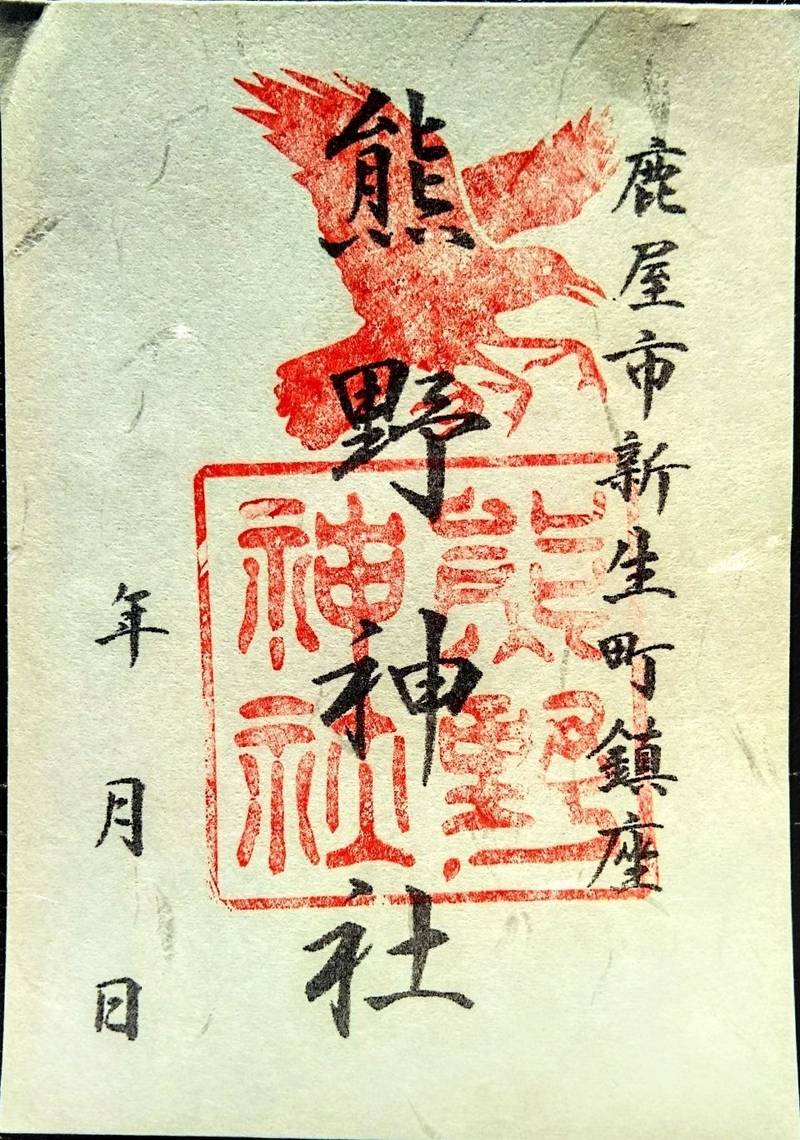 鹿屋市新生町鎮座
熊野神社
熊野神社
年 月 日